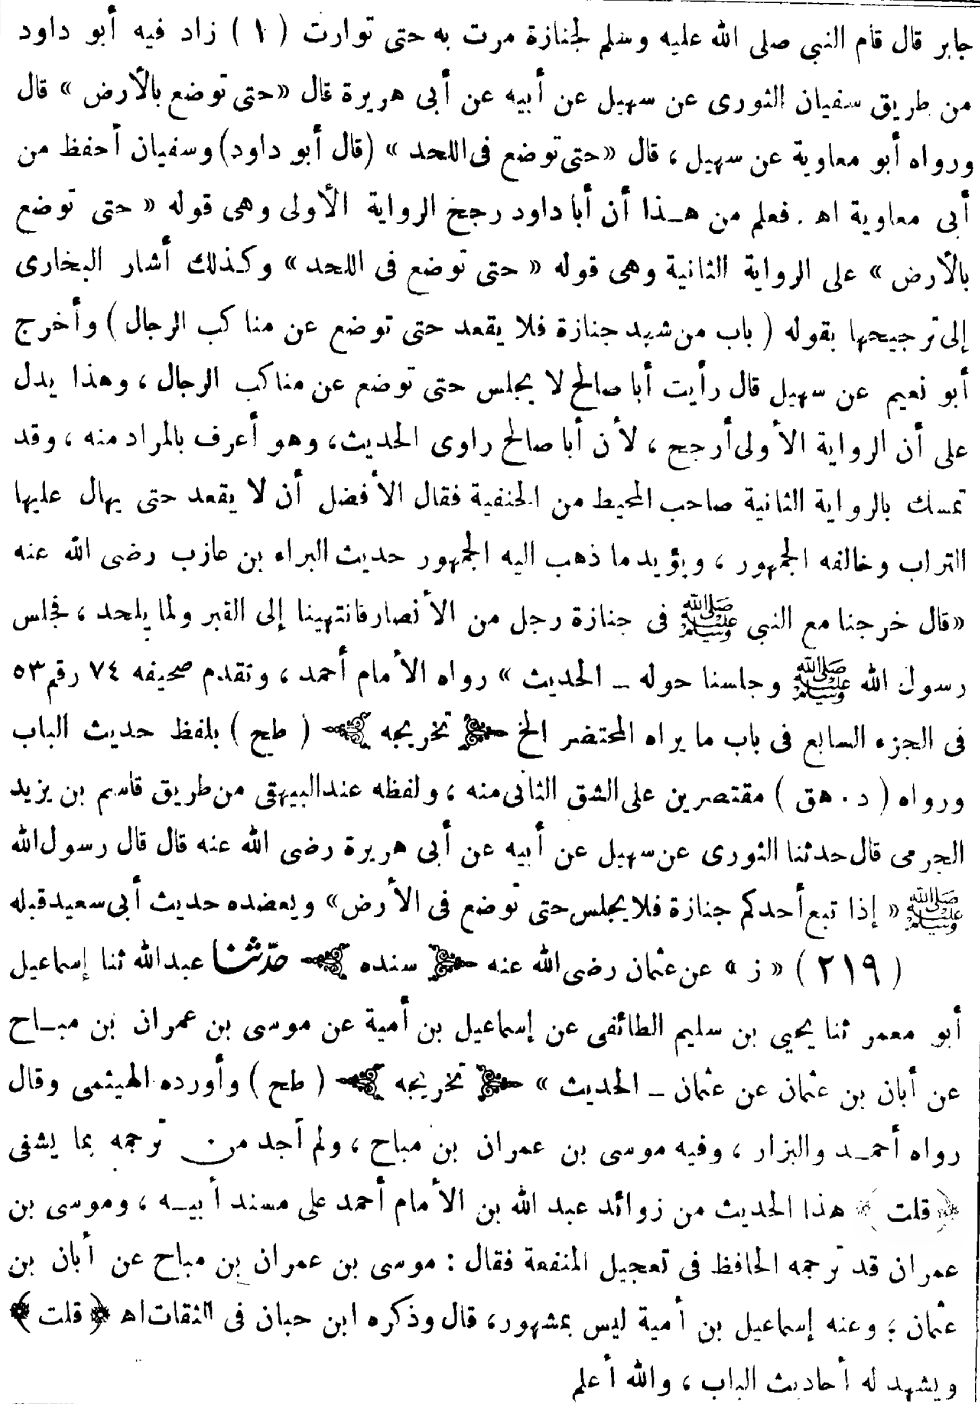 جابر قال قام النبى صلى الله عليه وسلم لجنازة مرت به حتى توارت (١) زاد فيه أبو داود
من طريق سفيان الثورى عن سهيل عن أبيه عن أبى هريرة قال «حتى توضع بالأرض» قال
ورواه أبو معاوية عن سهيل، قال «حتى توضع فى اللحد» (قال أبو داود) وسفيان أحفظ من
أبى معاوية اهـ. فعلم من هـذا أن أبا داود رجح الرواية الأولى وهى قوله «حتى توضع
بالأرض» على الرواية الثانية وهى قوله «حتى توضع فى اللحد» وكـذلك أشار البخارى
إلى ترجيحها بقوله (باب من شهد جنازة فلا يقعد حتى توضع عن مناكب الرجال) وأخرج
أبو نعيم عن سهيل قال رأيت أبا صالح لا يجلس حتى توضع عن مناكب الرجال، وهذا يدل
على أن الرواية الأولى أرجح، لأن أبا صالح راوى الحديث، وهو أعرف بالمراد منه، وقد
تمسك بالرواية الثانية صاحب المحيط من الحنفية فقال الأفضل أن لا يقعد حتى يهال عليها
التراب وخالفه الجمهور، ويؤيد ما ذهب اليه الجمهور حديث البراء بن عازب رضى الله عنه
«قال خرجنا مع النبى ﷺ فى جنازة رجل من الأنصار فانتهينا إلى القبر ولما يلحد، فجلس
رسول الله ﷺ وجلسنا حوله ـ الحديث» رواه الأمام أحمد، وتقدم صحيفه ٧٤ رقم ٥٣
فى الجزء السابع فى باب ما يراه المحتضر الخ ﴿تخريجه﴾ (طح) بلفظ حديث الباب
ورواه (د. هق) مقتصرين على الشق الثانى منه، ولفظه عند البيهقى من طريق قاسم بن يزيد
الجرمى قال حدثنا الثورى عن سهيل عن أبيه عن أبى هريرة رضى الله عنه قال قال رسول الله
ﷺ «إذا تبع أحدكم جنازة فلا يجلس حتى توضع فى الأرض» ويعضده حديث أبى سعيد قبله
(٢١٩) «ز» عن عثمان رضى الله عنه ﴿سنده﴾ حدّثنا عبد الله ثنا إسماعيل
أبو معمر ثنا يحيى بن سليم الطائفى عن إسماعيل بن أمية عن موسى بن عمران بن مبـاح
عن أبان بن عثمان عن عثمان ـ الحديث» ﴿تخريجه﴾ (طح) وأورده الهيثمى وقال
رواه أحمـد والبزار، وفيه موسى بن عمران بن مباح، ولم أجد من ترجمه بما يشفى
﴿قلت﴾ هذا الحديث من زوائد عبد الله بن الأمام أحمد على مسند أبيـه، وموسى بن
عمران قد ترجمه الحافظ فى تعجيل المنفعة فقال: موسى بن عمران بن مباح عن أبان بن
عثمان؛ وعنه إسماعيل بن أمية ليس بمشهور، قال وذكره ابن حبان فى الثقات اهـ ﴿قلت﴾
ويشهد له أحاديث الباب، والله أعلم